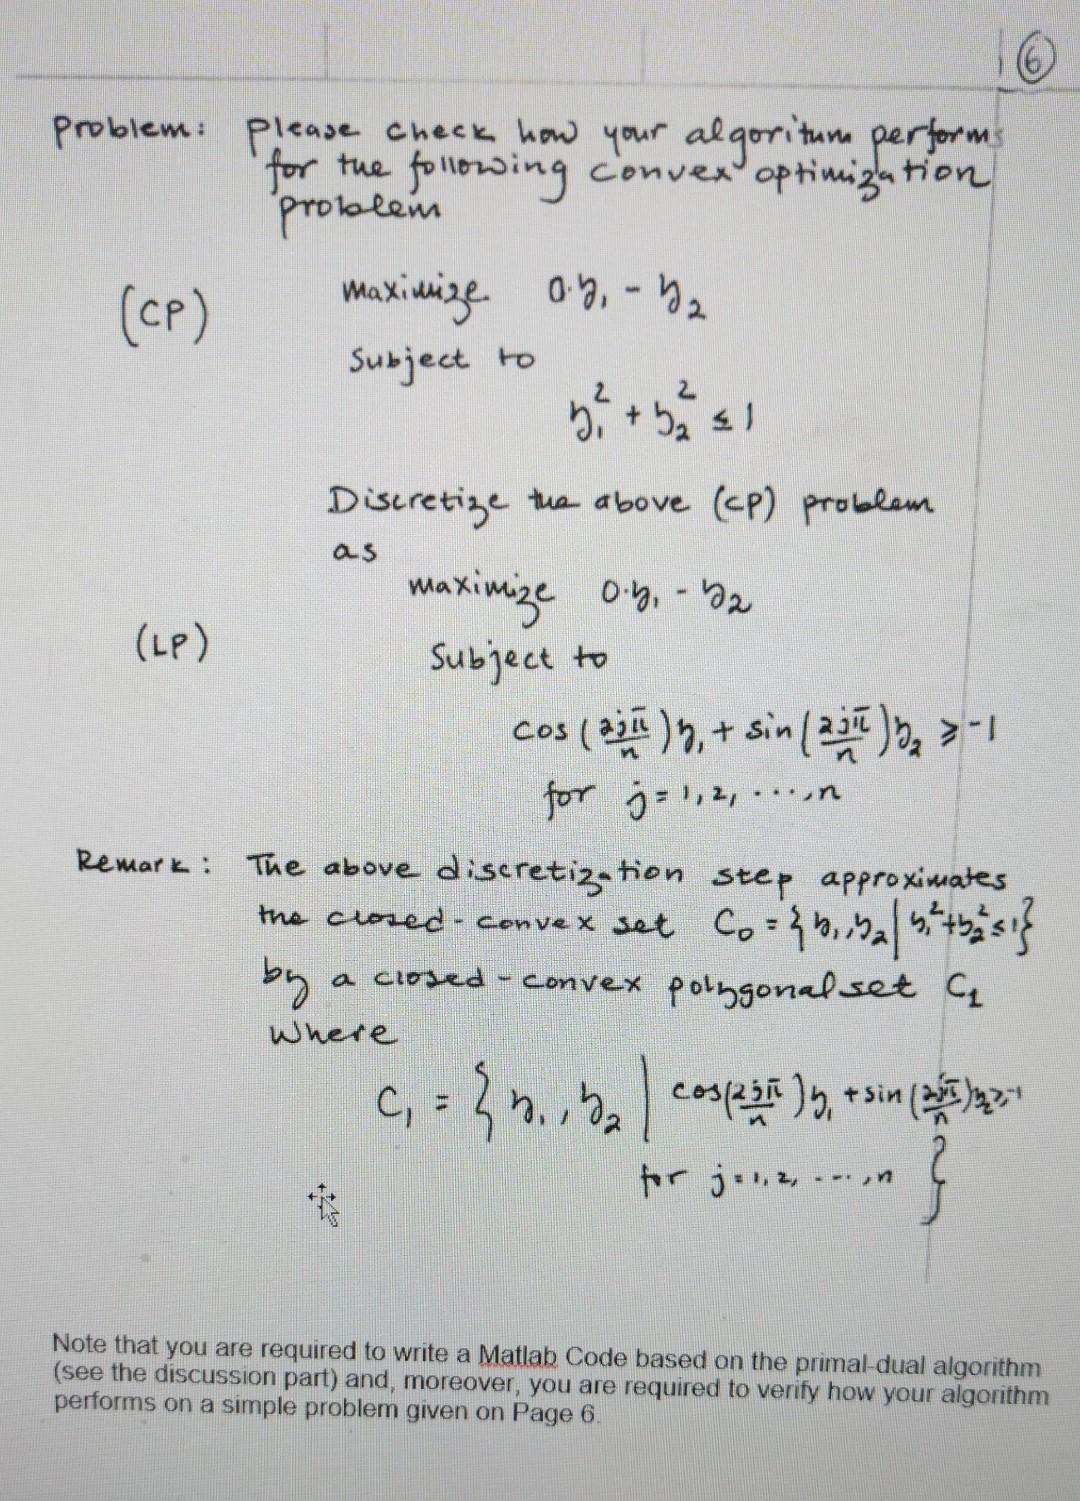 6
Problem: Please check how your algoritum performs
for the following convex optimization
problem
(CP) maximize 0·y₁ - y₂
Subject to
y₁² + y₂² ≤ 1
Discretize the above (CP) problem
as
maximize 0·y₁ - y₂
(LP)
Subject to
cos(2jπ/n)y₁ + sin(2jπ/n)y₂ ≥ -1
for j = 1, 2, ...., n
Remark: The above discretization step approximates
the closed-convex set C₀ = {y₁, y₂ | y₁² + y₂² ≤ 1}
by a closed-convex polygonal set C₁
where
C₁ = { y₁, y₂ | cos(2jπ/n)y₁ + sin(2jπ/n)y₂ ≥ -1
for j = 1, 2, ...., n }
Note that you are required to write a Matlab Code based on the primal-dual algorithm
(see the discussion part) and, moreover, you are required to verify how your algorithm
performs on a simple problem given on Page 6.